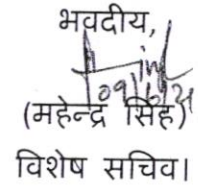 भवदीय,
(महेन्द्र सिंह)
विशेष सचिव।